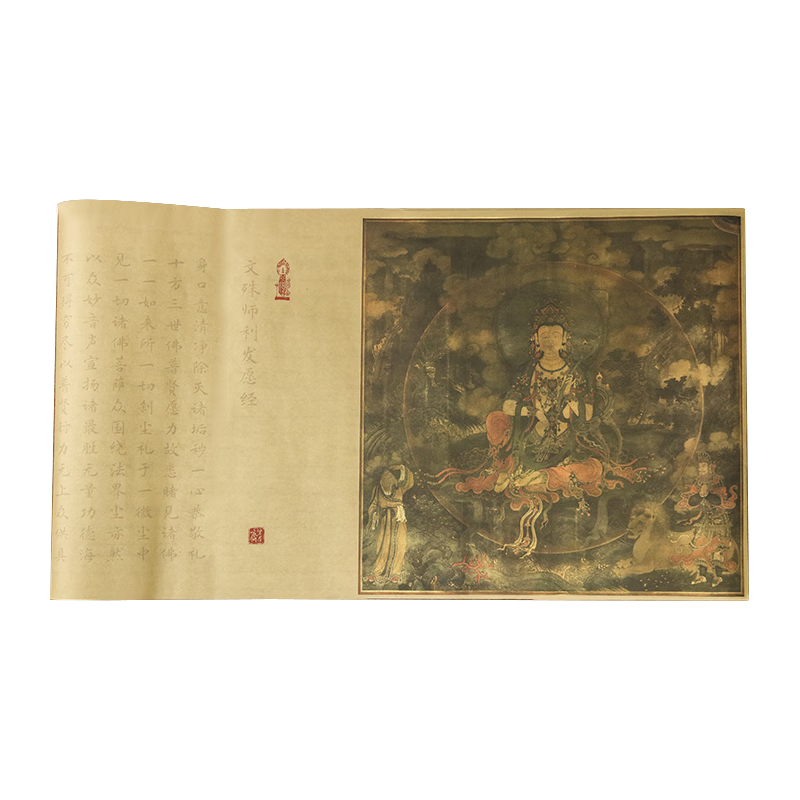 文殊师利发愿经
身口意清净除灭诸垢秽一心恭敬礼
十方三世佛普贤愿力故悉睹见诸佛
一一如来所一切刹尘礼于一微尘中
见一切诸佛菩萨众围绕法界尘亦然
以众妙音声宣扬诸最胜无量功德海
不可得穷尽以普贤行力无上众供具